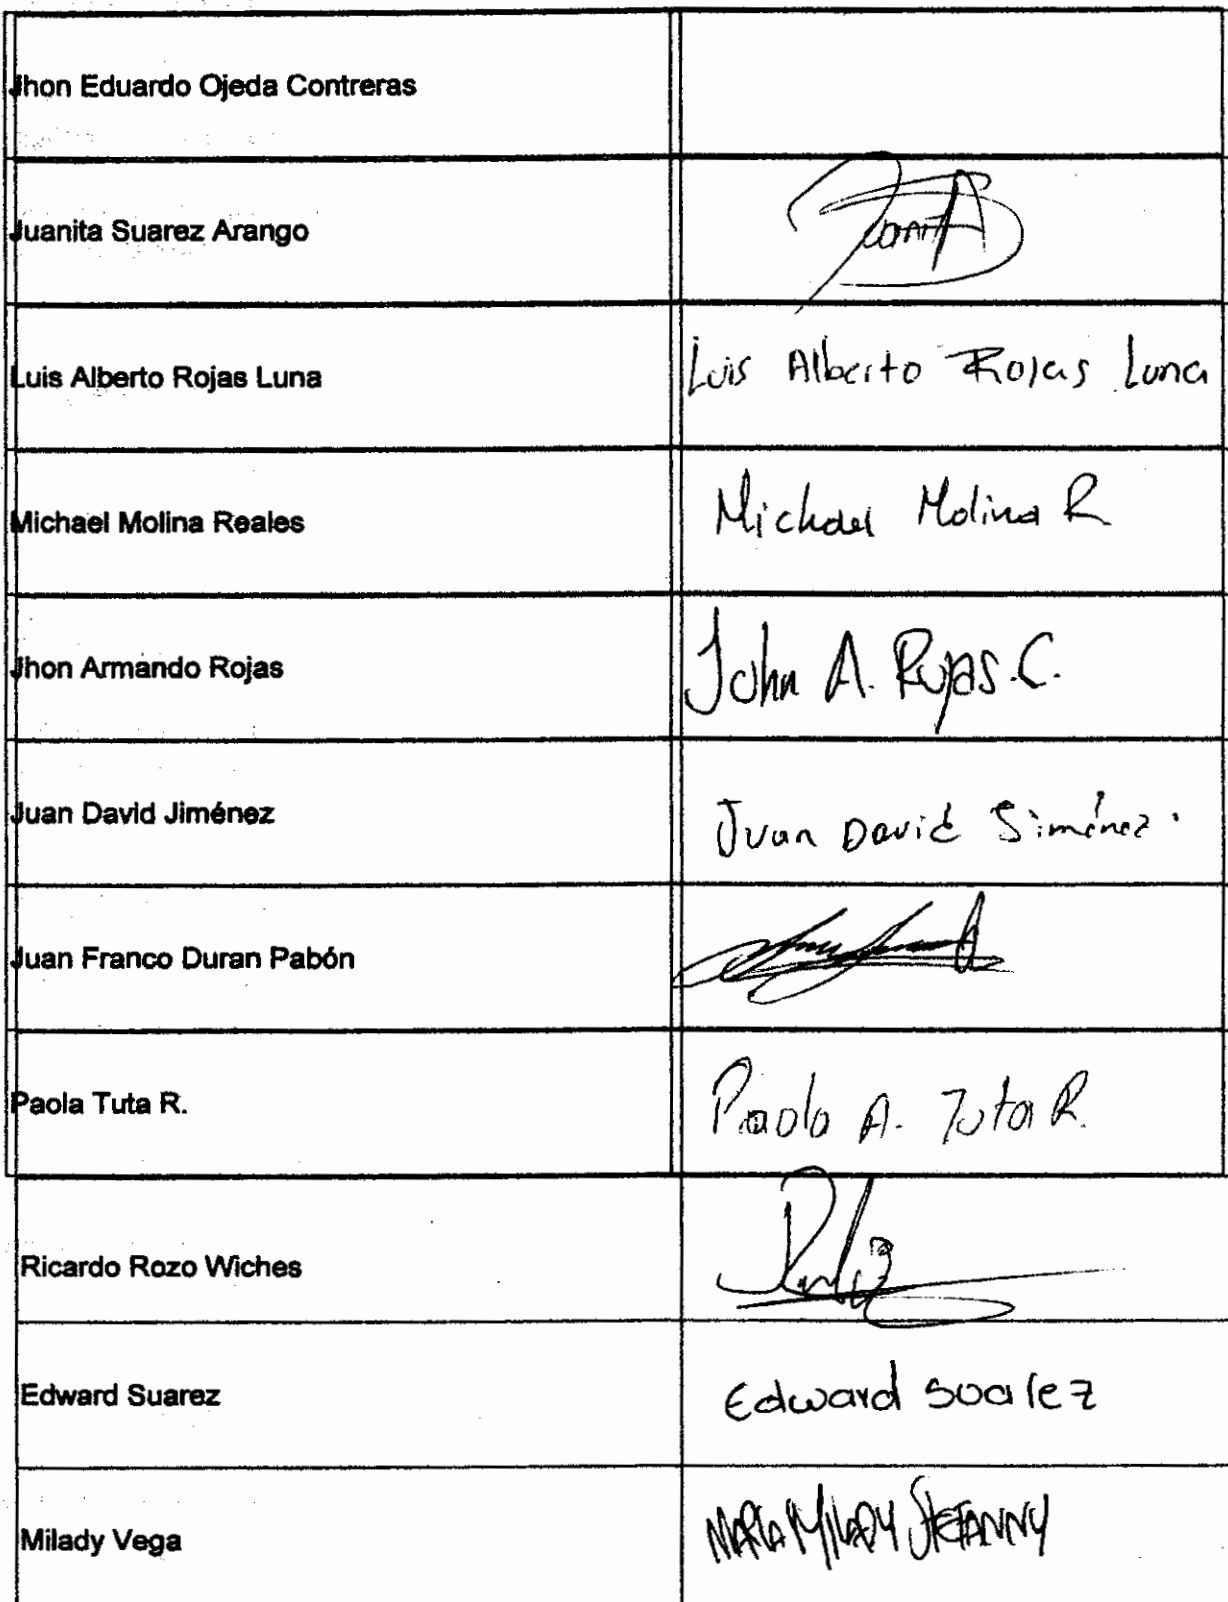 Jhon Eduardo Ojeda Contreras
Juanita Suarez Arango
Luis Alberto Rojas Luna Luis Alberto Rojas Luna
Michael Molina Reales Michael Molina R
Jhon Armando Rojas John A. Rojas.C.
Juan David Jiménez Juan David Jiménez.
Juan Franco Duran Pabón
Paola Tuta R. Paola A. Tuta R.
Ricardo Rozo Wiches
Edward Suarez Edward Suarez
Milady Vega MARIA MILADY STEFANNY